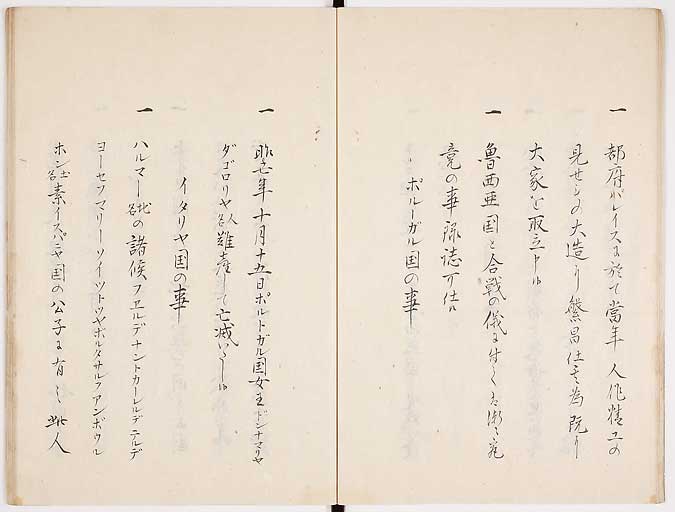 一 都府パレイスに於て當年人作精工の
見せもの大造り繁昌仕其為既に
大家を取立申候
一 魯西亜国と合戦の儀に付
竟の事録誌可仕候
ポルーガル国の事
一 昨七年十月十五日ポルトガル国女王ドンナマリヤ
ダゴロリヤ人名難産して亡滅いたし候
イタリヤ国の事
一 ハルマー地名の諸侯フェルデナントカーレルデデルデ
ヨーセフマリーソイツトツツポルタサルフアンボウル
ホン士名素イスパニヤ国の公子に有之此人